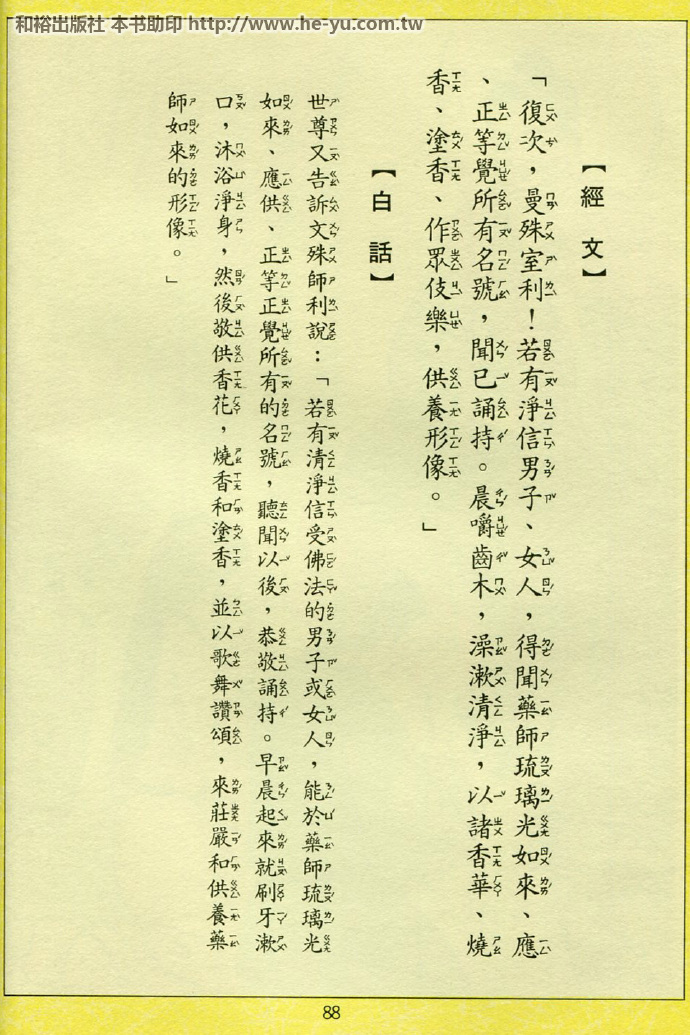 和裕出版社 本书助印 http://www.he-yu.com.tw
【經文】
「復次，曼殊室利！若有淨信男子、女人，得聞藥師琉璃光如來、應
、正等覺所有名號，聞已誦持。晨嚼齒木，澡漱清淨，以諸香華、燒
香、塗香、作眾伎樂，供養形像。」
【白話】
世尊又告訴文殊師利說：「若有清淨信受佛法的男子或女人，能於藥師琉璃光
如來、應供、正等正覺所有的名號，聽聞以後，恭敬誦持。早晨起來就刷牙漱
口，沐浴淨身，然後敬供香花，燒香和塗香，並以歌舞讚頌，來莊嚴和供養藥
師如來的形像。」
88